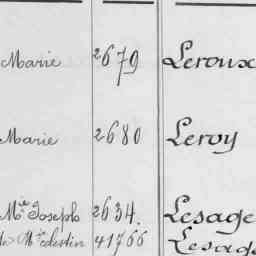 Marie 2679 Leroux
Marie 2680 Leroy
Mie Joseph 2634. Lesage
41766 Lesage